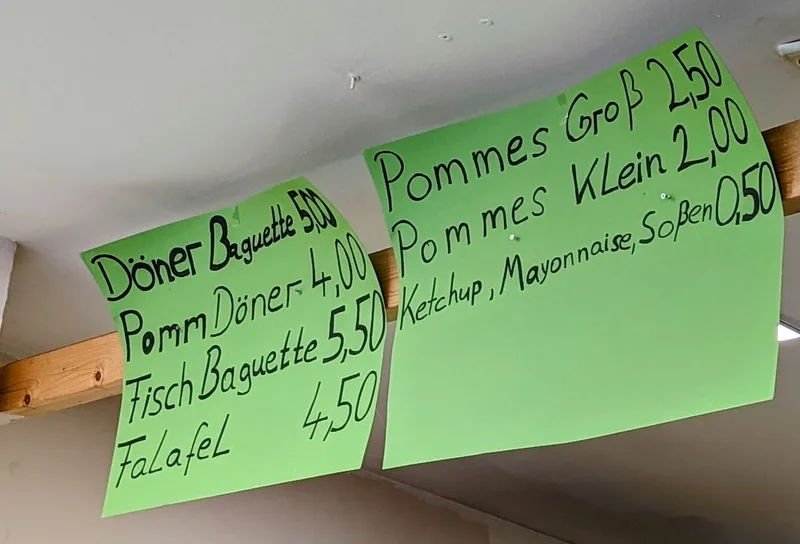 Döner Baguette 5,00
Pomm Döner 4,00
Fisch Baguette 5,50
Falafel 4,50
Pommes Groß 2,50
Pommes Klein 2,00
Ketchup, Mayonnaise, Soßen 0,50